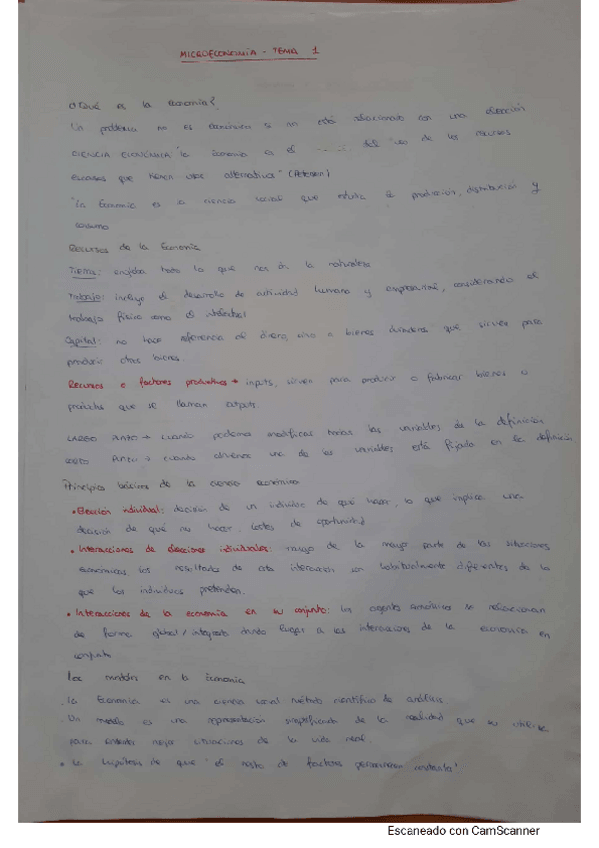 MICROECONOMÍA - TEMA 1
¿Qué es la Economía?
Un problema no es económico si no está relacionado con una elección
CIENCIA ECONÓMICA "la Economía es el del uso de los recursos
escasos que tienen usos alternativos"
"la Economía es la ciencia social que estudia la producción, distribución y
consumo
Recursos de la Economía
Tierra: engloba todo lo que nos da la naturaleza
Trabajo: incluye el desarrollo de actividad humana y empresarial, considerando el
trabajo físico como el intelectual
Capital: no hace referencia al dinero, sino a bienes duraderos que sirven para
producir otros bienes.
Recursos o factores productivos → inputs, sirven para producir o fabricar bienes o
productos que se llaman outputs.
LARGO PLAZO → cuando podemos modificar todas las variables de la definición
CORTO PLAZO → cuando al menos una de las variables está fijada en la definición
Principios básicos de la ciencia económica
• Elección individual: decisión de un individuo de qué hacer, lo que implica una
decisión de qué no hacer, costes de oportunidad
• Interacciones de elecciones individuales: rasgo de la mayor parte de las situaciones
económicas, los resultados de esta interacción son habitualmente diferentes de la
que los individuos pretenden.
• Interacciones de la economía en su conjunto: los agentes económicos se relacionan
de forma global / integrada dando lugar a las interacciones de la economía en
conjunto
Los modelos en la Economía
. La Economía es una ciencia social método científico de análisis
. Un modelo es una representación simplificada de la realidad que se utiliza
para entender mejor situaciones de la vida real.
• La hipótesis de que "el resto de factores permanecen constante"
Escaneado con CamScanner